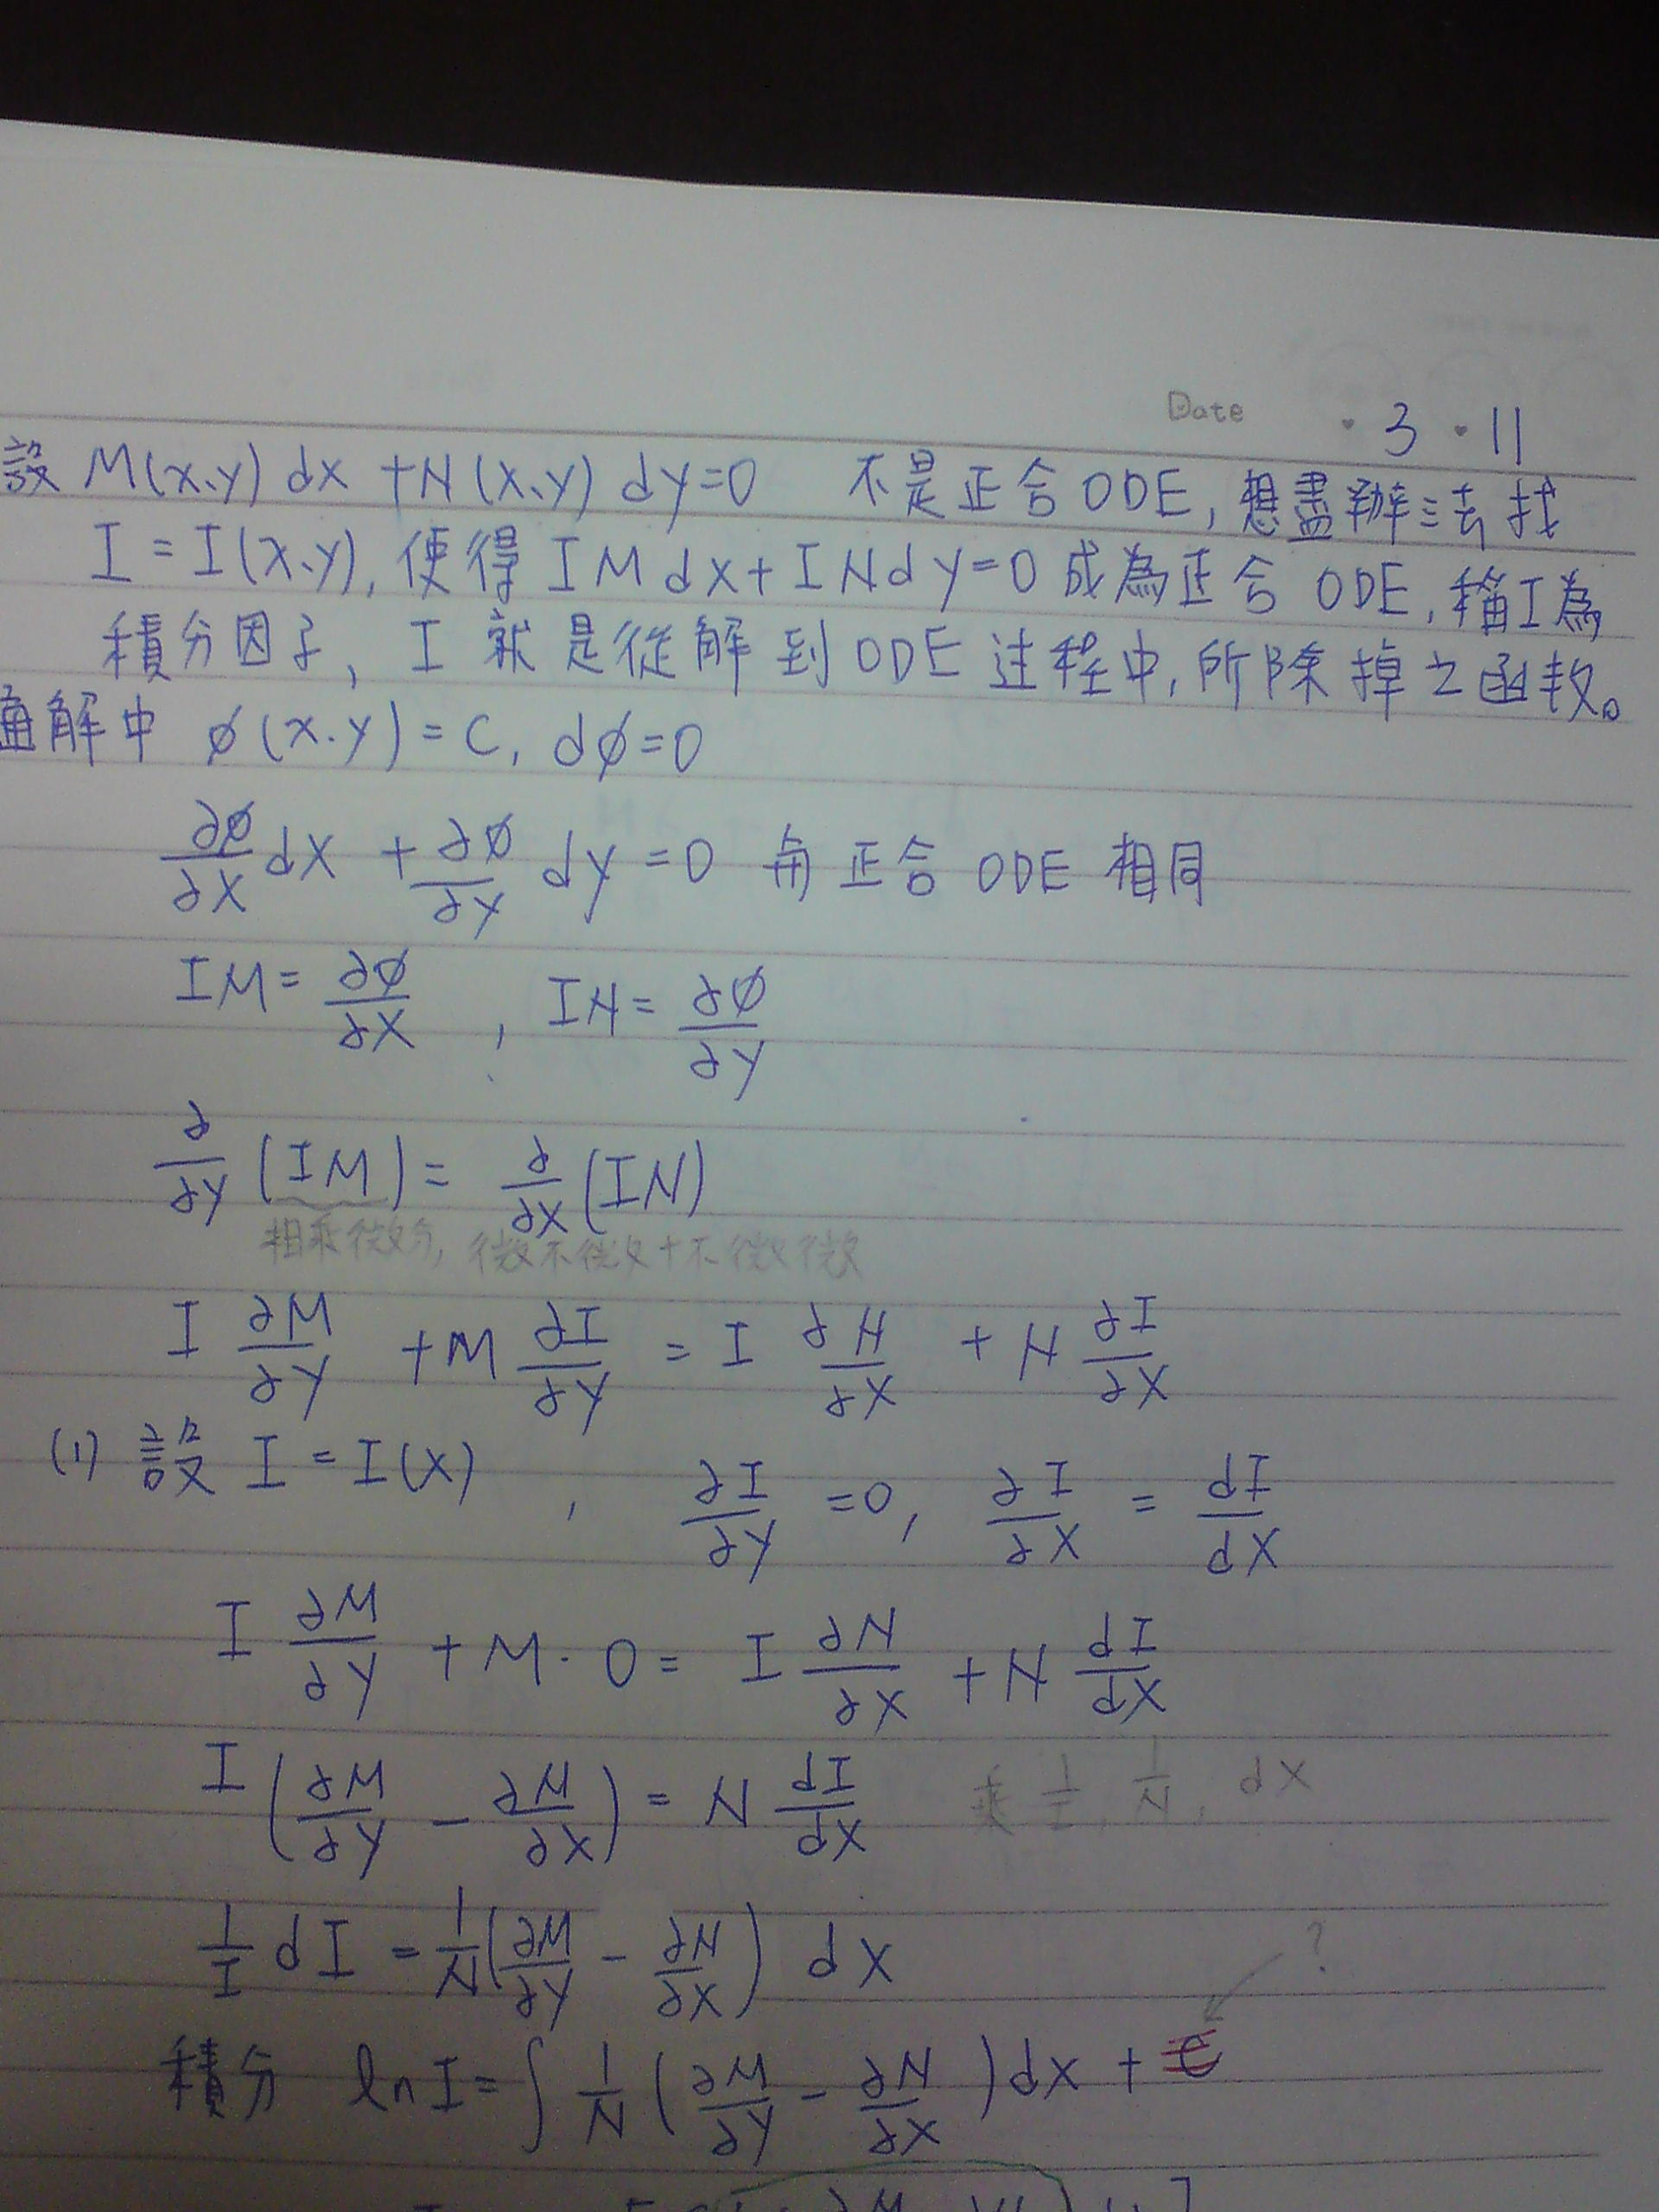 Date 3 11
設 M(x、y) dx + N(x、y) dy=0 不是正合ODE, 想盡辦法找
I = I(x、y), 使得 IMdx+INdy=0 成為正合 ODE, 稱I為
積分因子, I 就是從解到ODE 过程中, 所除掉之函数。
通解中 ∅(x.y)=C, d∅=0
∂∅/∂x dx + ∂∅/∂y dy =0 與正合 ODE 相同
IM= ∂∅/∂x , IN= ∂∅/∂y
∂/∂y (IM) = ∂/∂x (IN)
相乘微分, 微不微+不微微
I ∂M/∂y + M ∂I/∂y = I ∂N/∂x + N ∂I/∂x
(1) 設 I = I(x) , ∂I/∂y =0, ∂I/∂x = dI/dx
I ∂M/∂y + M · 0 = I ∂N/∂x + N dI/dx
I (∂M/∂y - ∂N/∂x) = N dI/dx 乘 1/I, 1/N, dx
1/I dI = 1/N (∂M/∂y - ∂N/∂x) dx
?
積分 ln I = ∫ 1/N (∂M/∂y - ∂N/∂x) dx + C